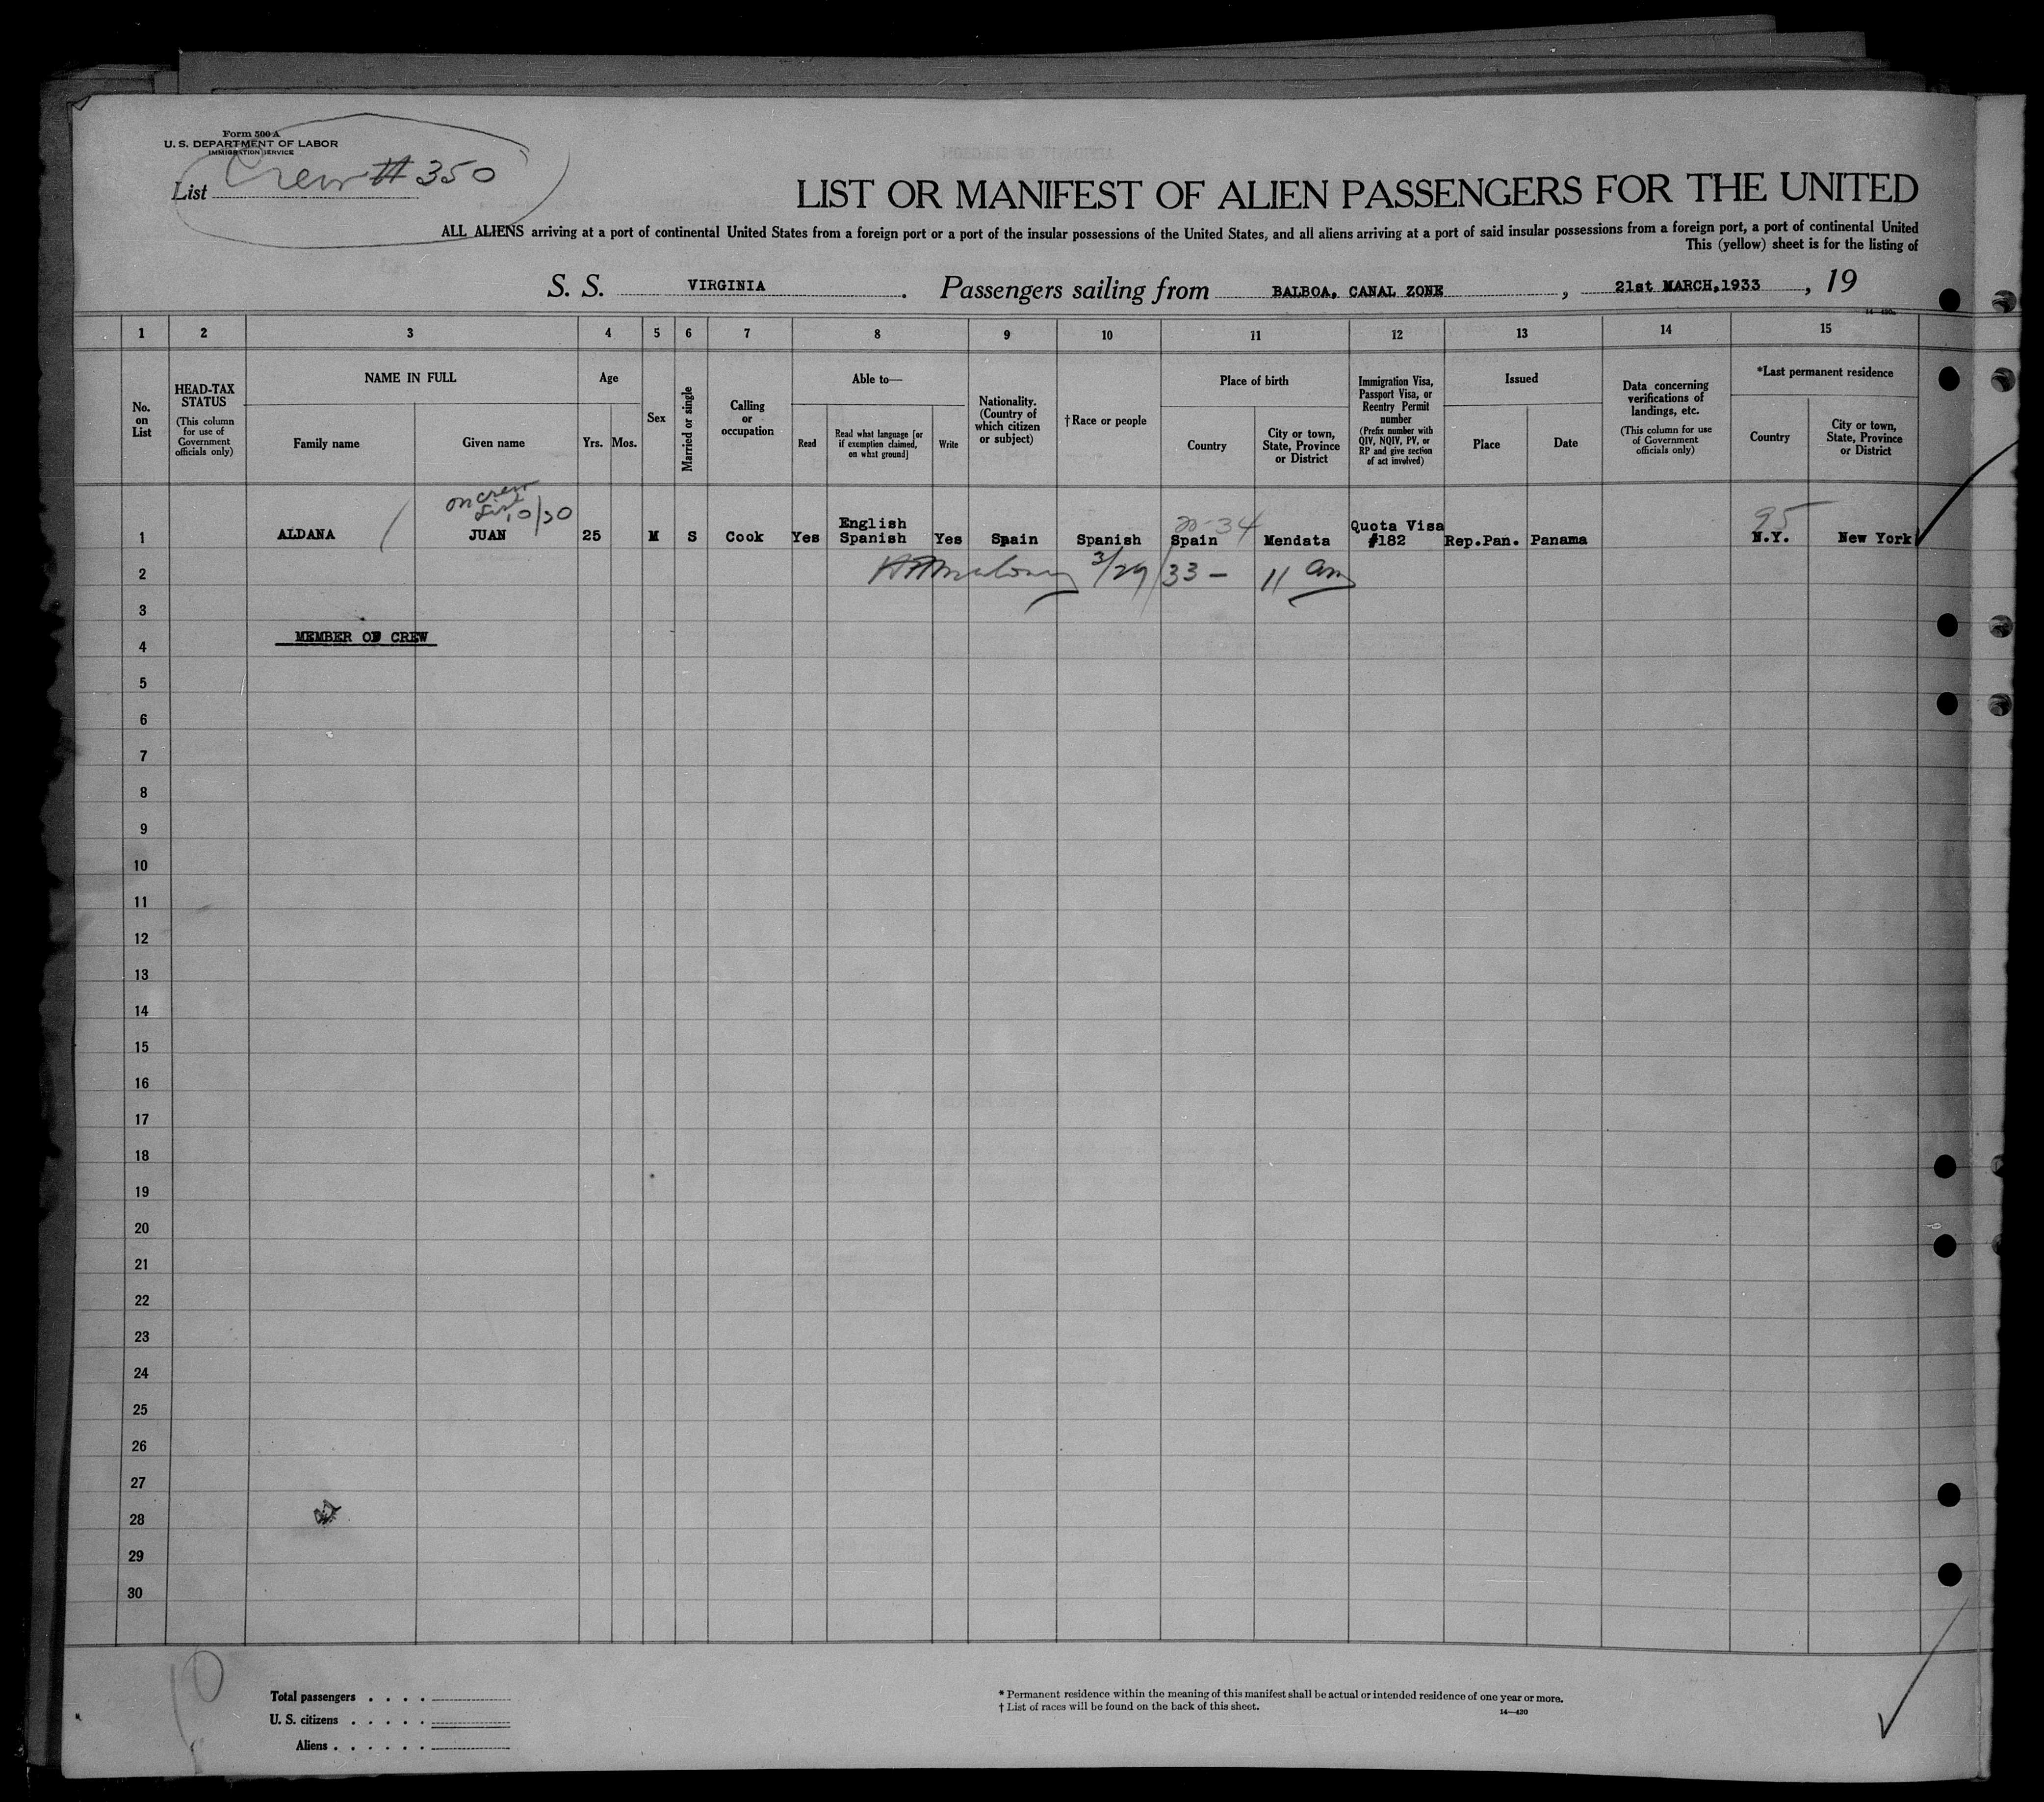 Form 500 A
U. S. DEPARTMENT OF LABOR
IMMIGRATION SERVICE
List Crew # 350
LIST OR MANIFEST OF ALIEN PASSENGERS FOR THE UNITED
ALL ALIENS arriving at a port of continental United States from a foreign port or a port of the insular possessions of the United States, and all aliens arriving at a port of said insular possessions from a foreign port, a port of continental United
This (yellow) sheet is for the listing of
S. S. VIRGINIA. Passengers sailing from BALBOA, CANAL ZONE, 21st MARCH, 1933, 19
14—430
1 2 3 4 5 6 7 8 9 10 11 12 13 14 15
No. on List
HEAD-TAX STATUS
(This column for use of Government officials only)
NAME IN FULL
Family name
Given name
Age
Yrs. Mos.
Sex
Married or single
Calling or occupation
Able to—
Read
Read what language [or if exemption claimed, on what ground]
Write
Nationality. (Country of which citizen or subject)
†Race or people
Place of birth
Country
City or town, State, Province or District
Immigration Visa, Passport Visa, or Reentry Permit number
(Prefix number with QIV, NQIV, PV, or RP and give section of act involved)
Issued
Place
Date
Data concerning verifications of landings, etc.
(This column for use of Government officials only)
*Last permanent residence
Country
City or town, State, Province or District
on crew
list 10/30
English Quota Visa 95
1 ALDANA JUAN 25 M S Cook Yes Spanish Yes Spain Spanish Spain Mendata #182 Rep.Pan. Panama N.Y. New York
2 3/29/33 - 11 am
3
MEMBER OF CREW
4
5
6
7
8
9
10
11
12
13
14
15
16
17
18
19
20
21
22
23
24
25
26
27
28
29
30
Total passengers . . . .
U. S. citizens . . . . .
Aliens . . . . . .
* Permanent residence within the meaning of this manifest shall be actual or intended residence of one year or more.
† List of races will be found on the back of this sheet.
14—430